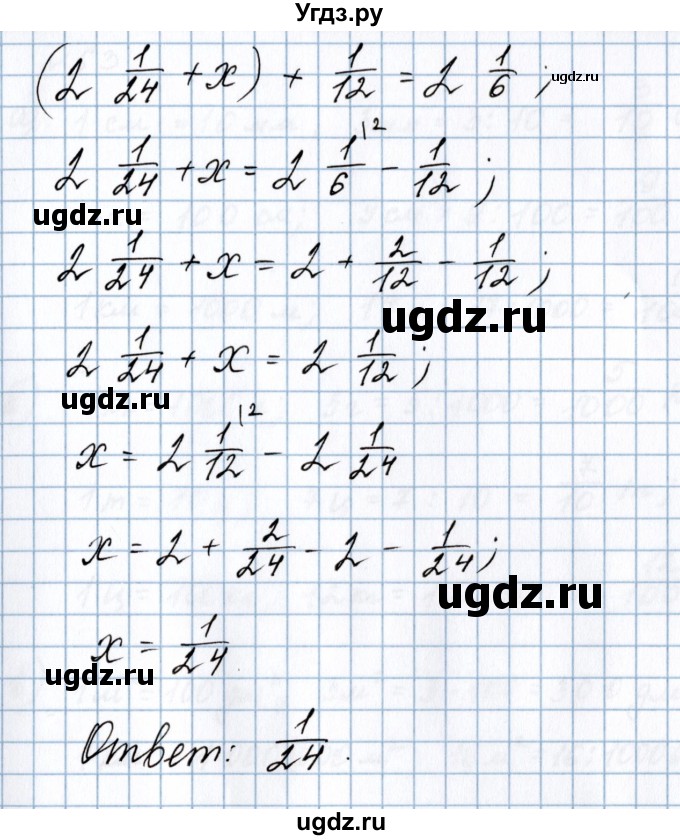 Угдз.ру
(2 1/24 + x) + 1/12 = 2 1/6 ;
ugdz.ru
2 1/24 + x = 2 1/6 |2 - 1/12 ;
ugdz.ru
2 1/24 + x = 2 + 2/12 - 1/12 ;
ugdz.ru
2 1/24 + x = 2 1/12 ;
ugdz.ru
x = 2 1/12 |2 - 2 1/24
x = 2 + 2/24 - 2 - 1/24 ;
ugdz.ru
x = 1/24
ugdz.ru
Ответ: 1/24.